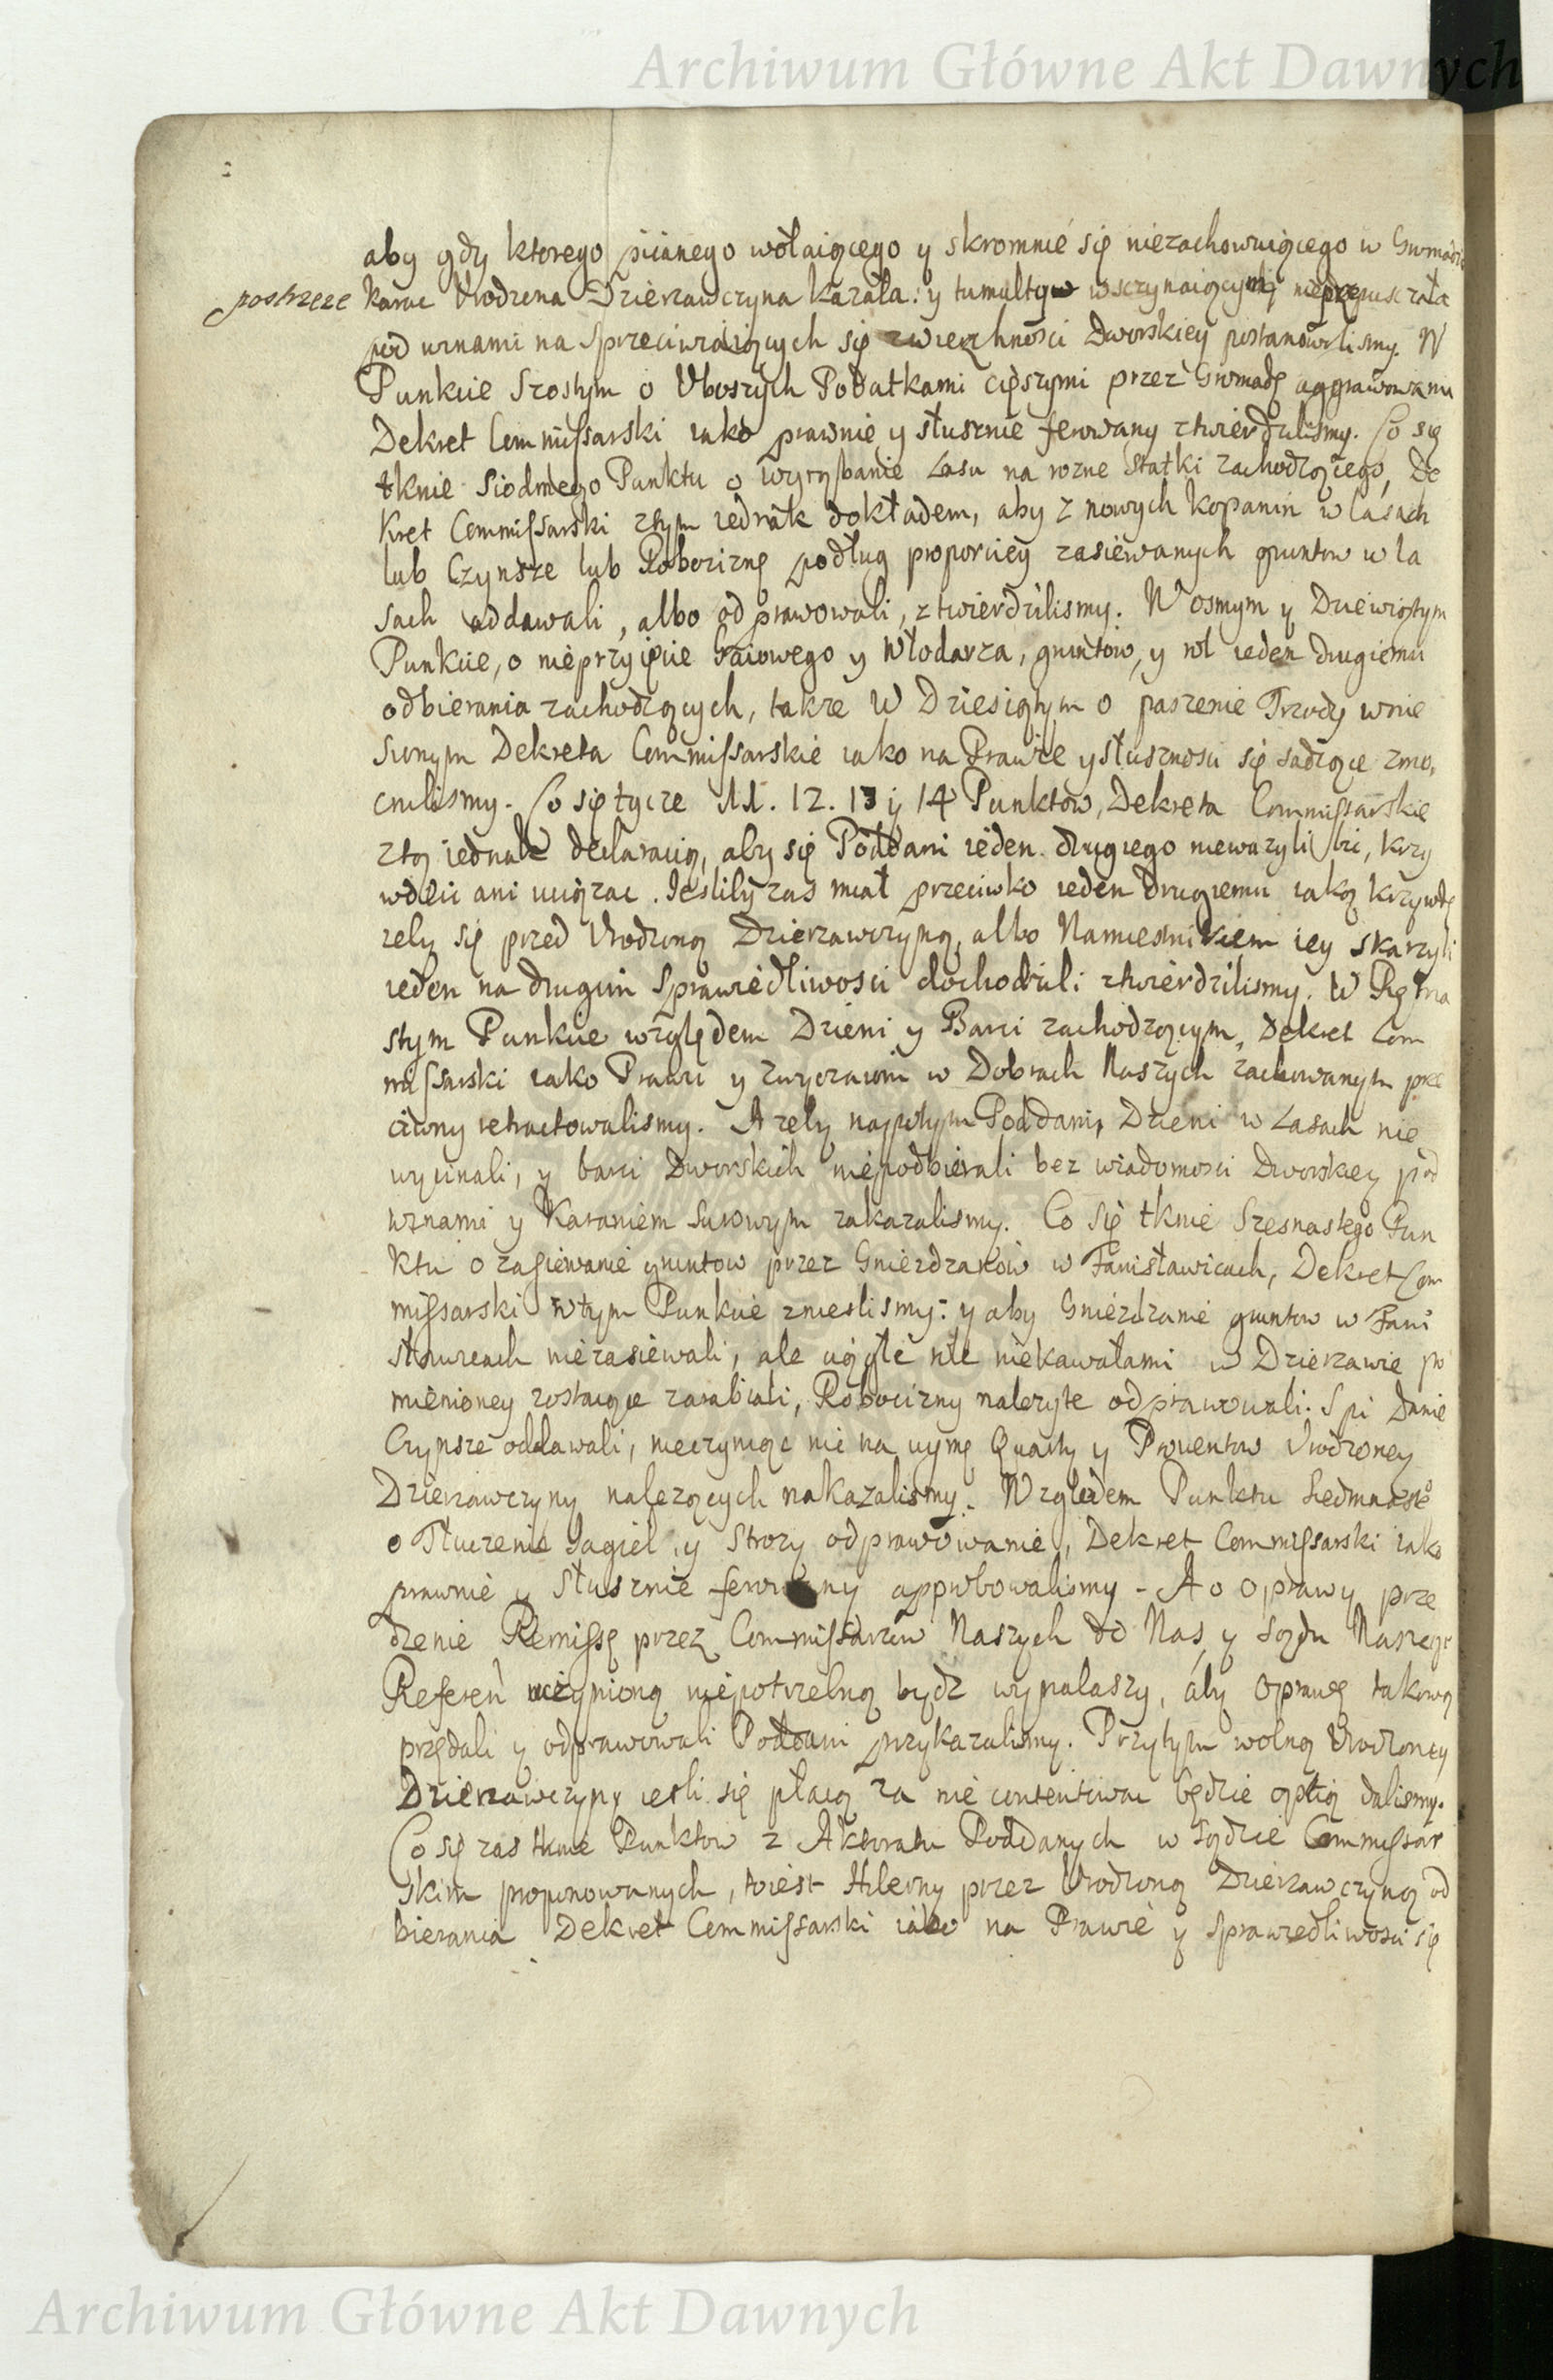 Archiwum Główne Akt Dawnych
aby gdy ktorego piianego wołaiącego y skromnie się niezachowuiącego w Gromadzie
postrzeze karac Urodzona Dzierzawczyna kazała: y tumulty wsczynaiącym nieprzepusczała
pod winami na Sprzeciwiaiących się zwierzchnosci Dworskiey postanowilismy. W
Punkcie Szostym o Vboszych Podatkami cięszymi przez Gromadę aggrawowaniu
Dekret Commissarski iako prawnie y słusznie ferowany ztwierdzilismy. Co się
tknie Siodmego Punktu o wyrąbanie Lasu na rozne Statki zachodzącego, De
kret Commissarski ztym iednak dokładem, aby z nowych kopanin w lasach
lub Czynsze lub Roboczizne podług proporciey zasiewanych gruntow w la
sach oddawali, albo odprawowali, ztwierdzilismy. W osmym y Dziewiątym
Punkcie, o nieprzyięcie Gaiowego y Włodarza, gruntow, y rol ieden drugiemu
odbierania zachodzących, takze W Dziesiątym o paszenie Trzody wnie
sionym Dekreta Commissarskie iako na Prawie y słusznosci się sadzące zmo,
cnilismy. Co się tycze 11. 12. 13 y 14 Punktow, Dekreta Commissarskie
z tą iednak declaracią, aby się Poddani ieden drugiego niewazyli bic, krzy
wdzic ani uciązac. Jesliby zas miał przeciwko ieden drugiemu iaką krzywdę
zeby się przed Urodzoną Dzierzawczyną, albo Namiesnikiem iey skarzyli
ieden na drugim Sprawiedliwosci dochodzili ztwierdzilismy. W Piętna
stym Punkcie względem Dzieni y Barci zachodzącym, Dekret Com
missarski iako Prawu y zwyczaiom w Dobrach Naszych zachowanym prze
ciwny retractowalismy. A zeby napotym Poddani, Dzieni w Lasach nie
wycinali, y barci Dworskich niepodbierali bez wiadomosci Dworskiey pod
winami y Karaniem Surowym zakazalismy. Co się tknie Szesnastego Pun
ktu o zasiewanie gruntow przez Gniezdzanow w Fanisławicach, Dekret Com
missarski w tym Punkcie zneslismy: y aby Gniezdzanie gruntow w Fani
sławicach niezasiewali, ale ciągłe role niekawałami w Dzierzawie po
mienioney zostaiące zarabiali, Robocizny nalezyte odprawowali. Spi Danie
Czynsze oddawali, nieczyniąc nic na uymę Quarty y Prowentow Urodzoney
Dzierzawczyny nalezących nakazalismy. Względem Punktu Siedmnaste
o Tłuczenie Jagieł, y Strozy odprawowanie, Dekret Commissarski iako
prawnie y Słusznie ferowany approbowalismy - A o oprawy prze
dzenie Remissę przez Commissarzow Naszych do Nas, y Sądu Naszego
Referen uczynioną niepotrzebną bydz wynalaszy, aby oprawę takową
przędali y odprawowali Poddani przykazalismy. Przytym wolną Urodzoney
Dzierzawczyny iesli się płacą za nie contentowac będzie optią dalismy.
Co się zas tknie Punktow z Aktoratu Poddanych w Sądzie Commissar
skim proponowanych, toiest Hiberny przez Urodzoną Dzierzawczyną od
bierania Dekret Commissarski iako na Prawie y Sprawiedliwosci się
Archiwum Główne Akt Dawnych